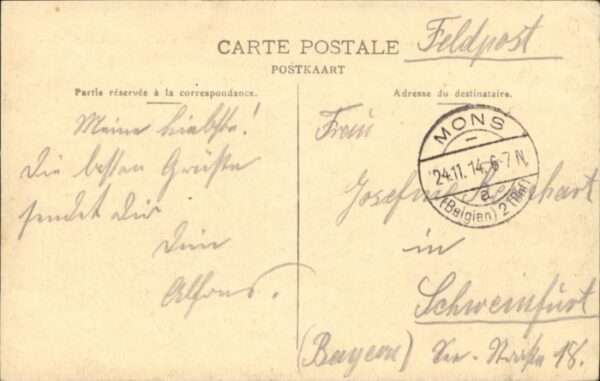 CARTE POSTALE
POSTKAART
Feldpost
Partie réservée à la correspondance.
Adresse du destinataire.
Meine Liebste!
Die besten Grüße
sendet Dir
Dein
Alfons.
Frau
in
Schweinfurt
(Bayern)
Straße 18.
MONS
24.11.14. 6-7 N.
a
(Belgien) 2 (Bhf)